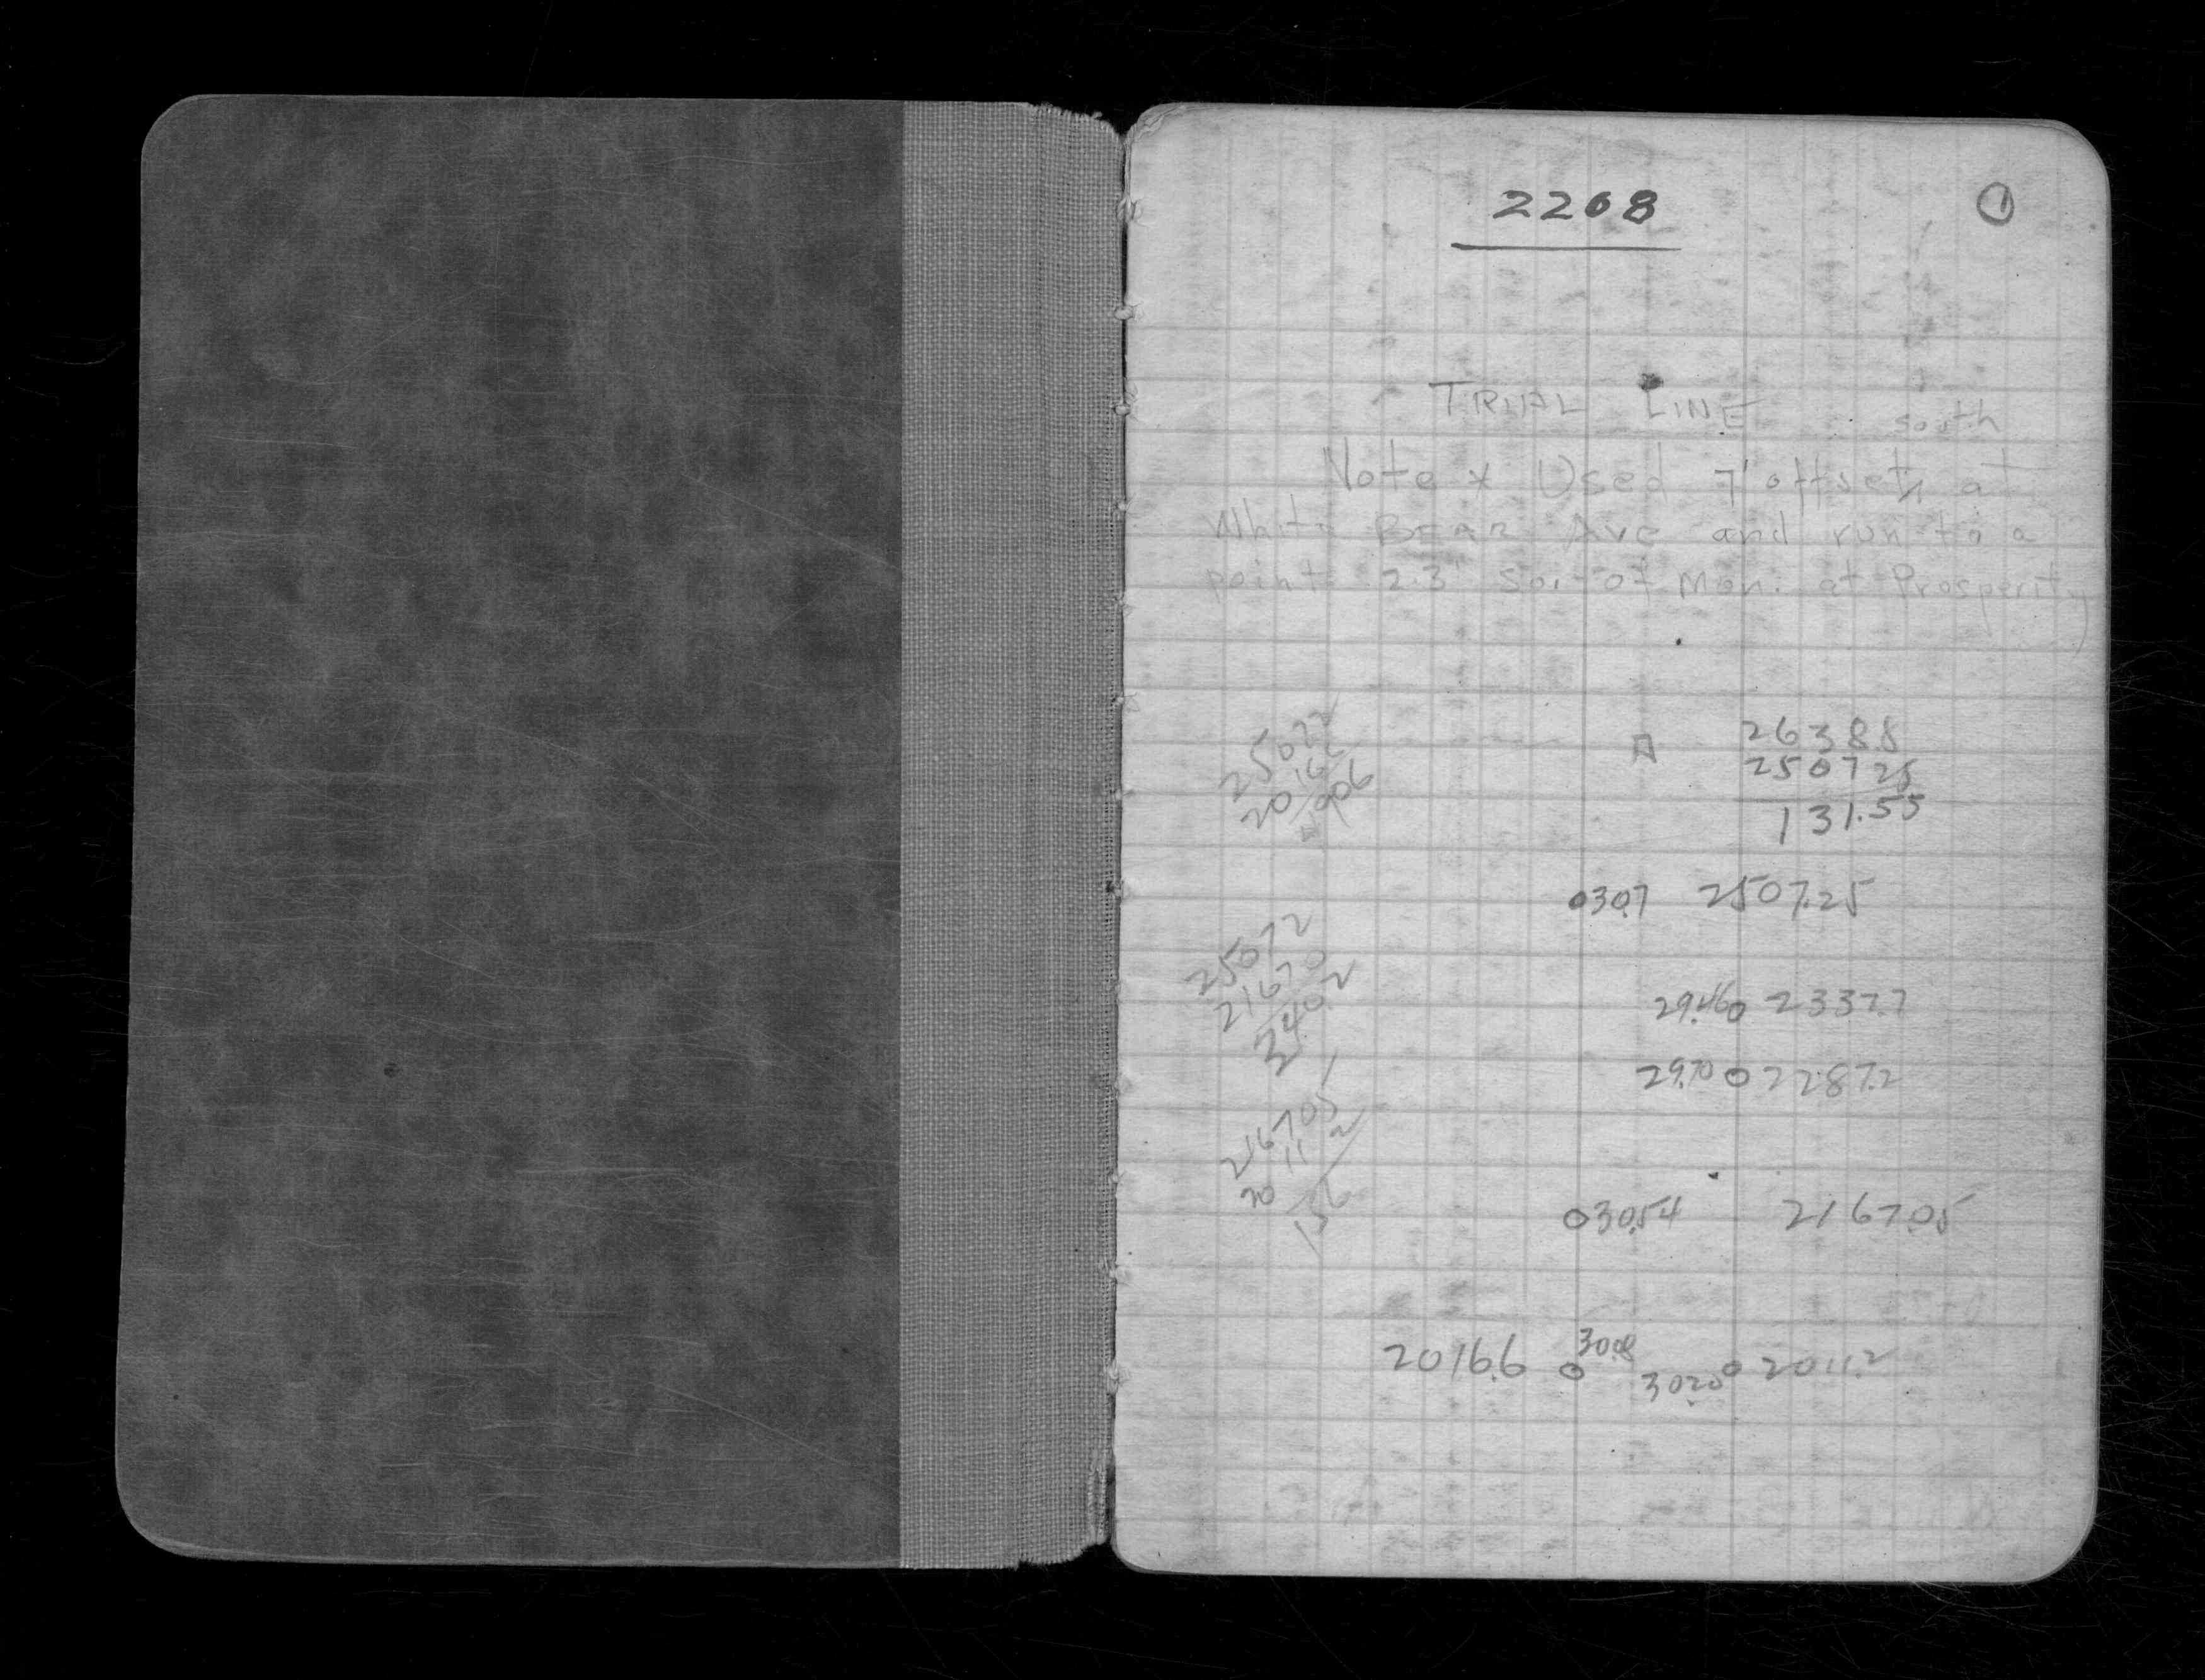 2268
1
TRIAL LINE
south
Note * Used 7' offset at
White BEAR Ave and run to a
point 2.3' So. of Mon. at Prosperity
25072
2638.8
2507.25
131.55
030.7 2507.25
25072
21670
3402
29.46 0 2337.7
29.70 0 2287.2
216705
2011 2
156
0 30.54 2167.05
2016.6 0 30.08
30.20 0 2011.2